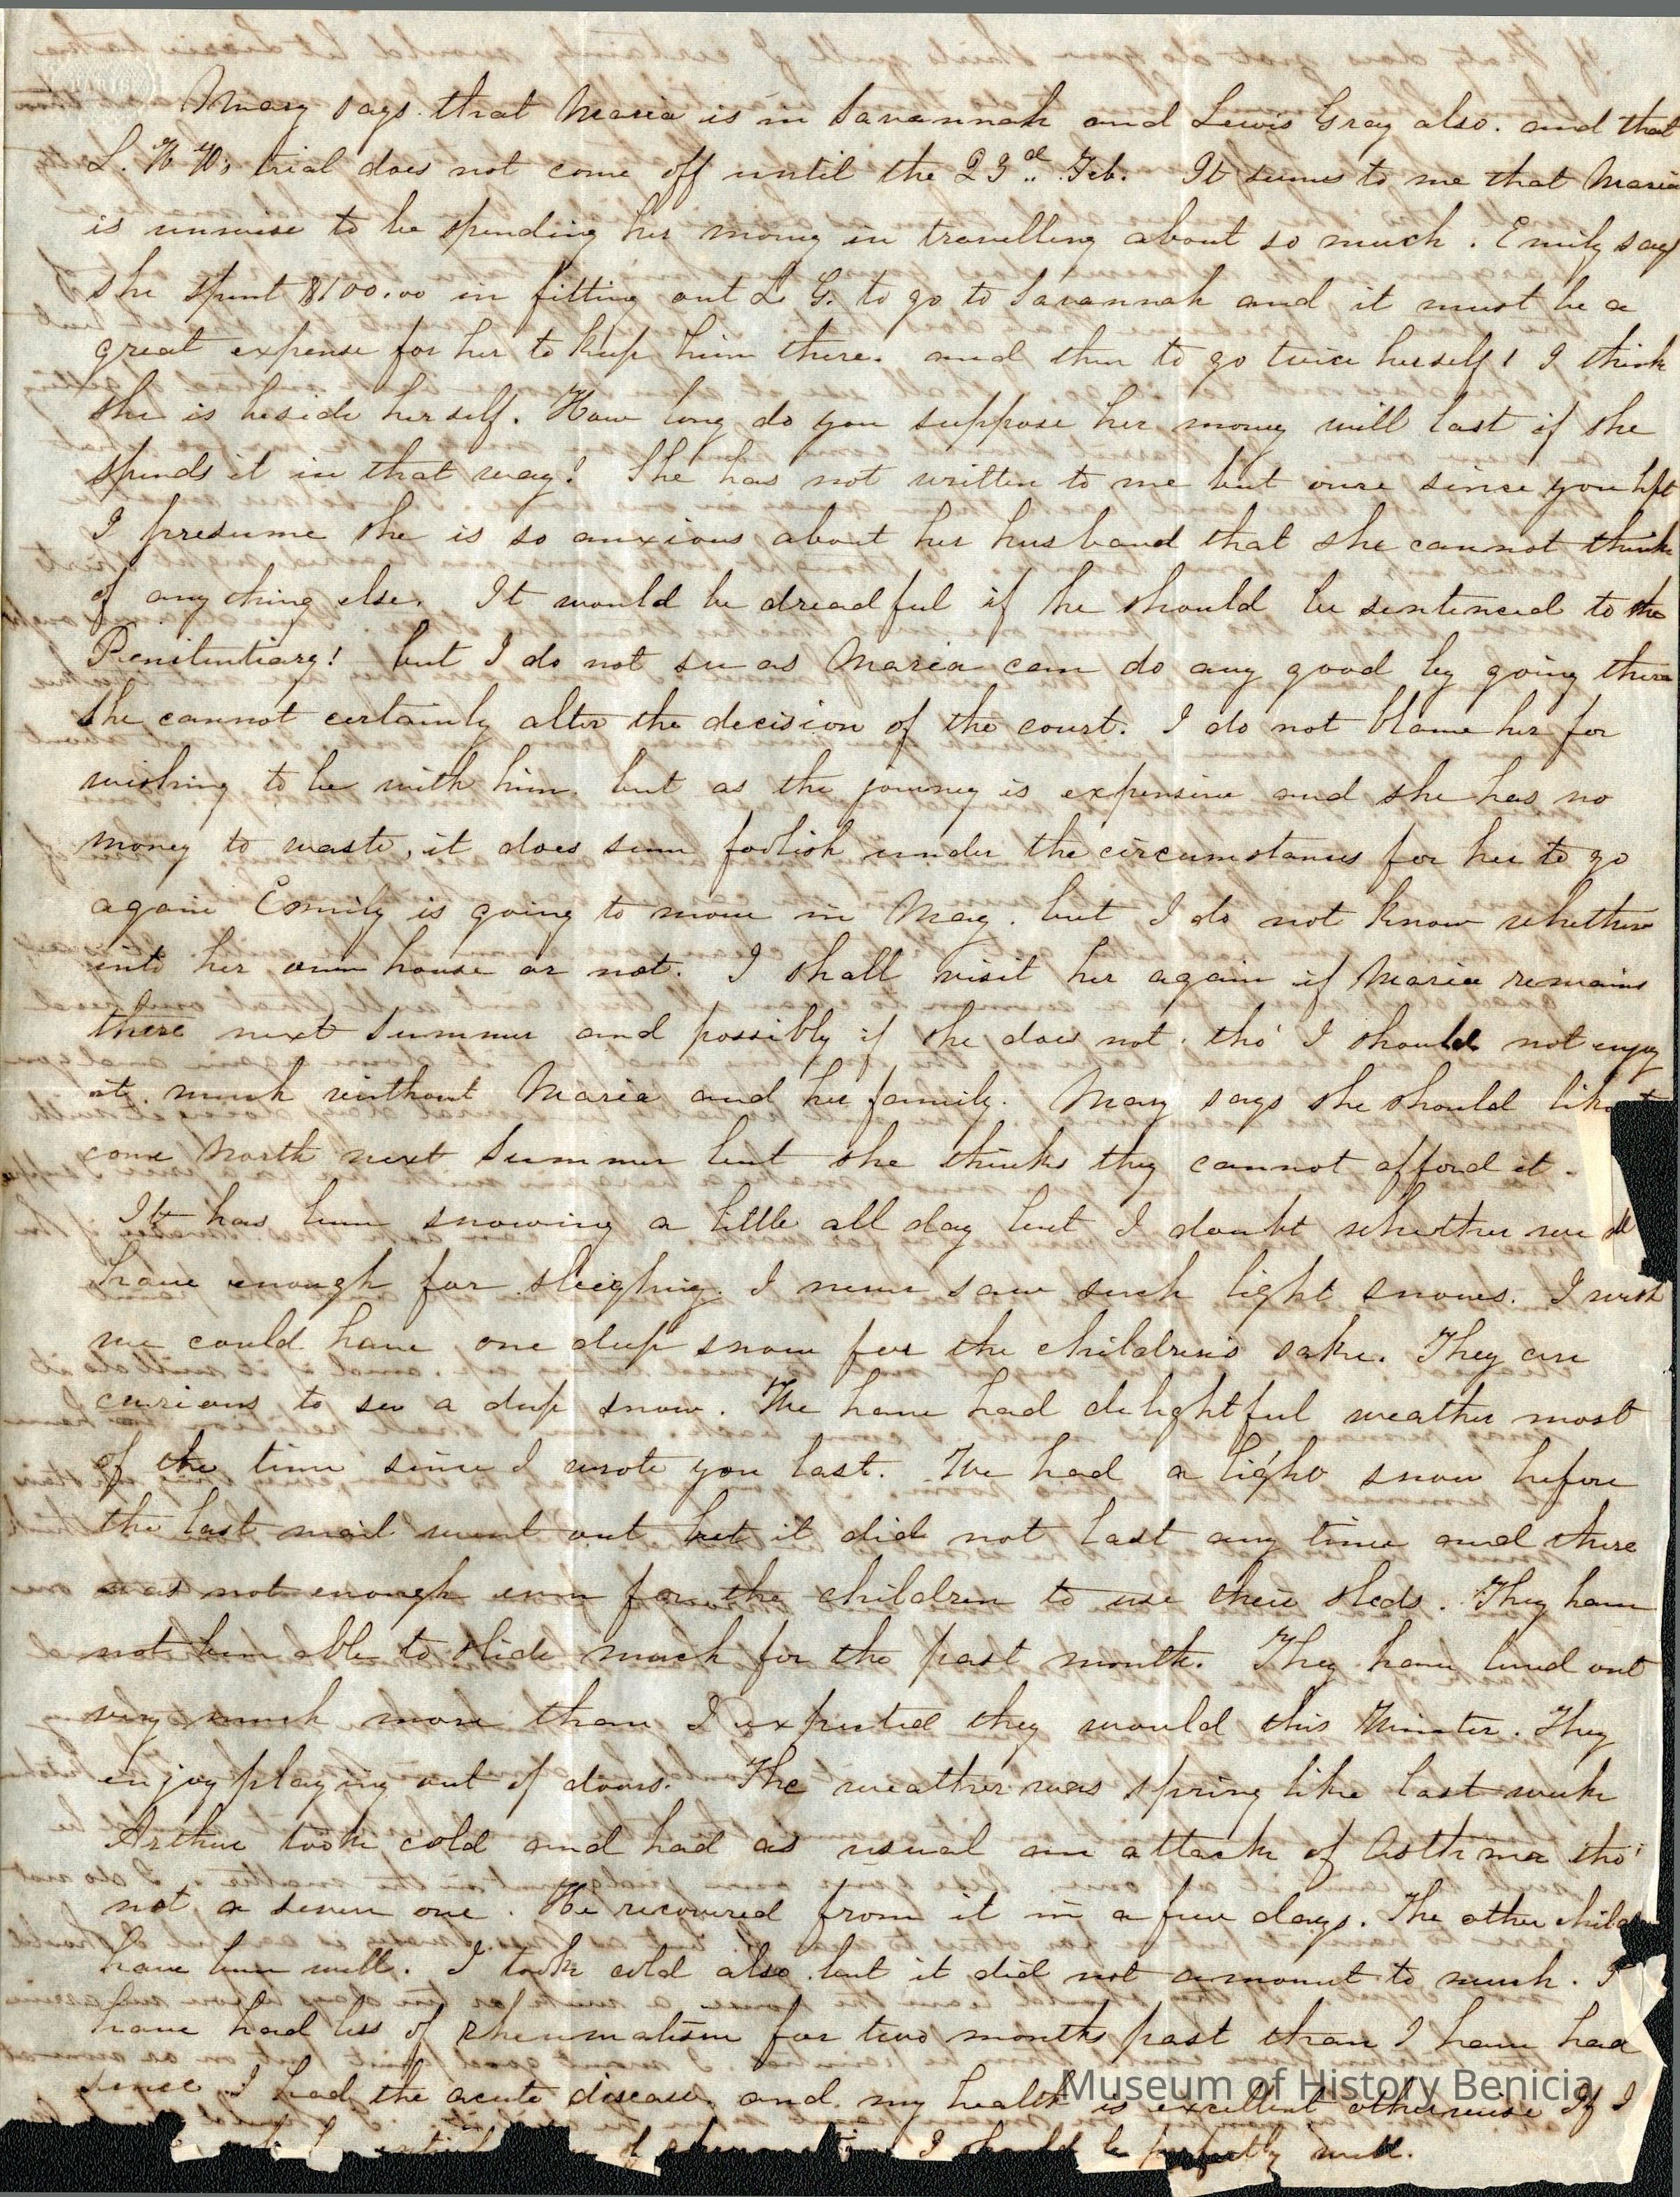 Mary says that Maria is in Savannah and Lewis Gray also. and that
L. trial does not come off until the 23d.. Feb. It seems to me that Maria
is unwise to be spending her money in travelling about so much. Emily says
she spent $100.00 in fitting out L G. to go to Savannah and it must be a
great expense for her to keep him there. and then to go twice herself! I think
she is beside herself. How long do you suppose her money will last if she
spends it in that way? She has not written to me but once since you left
I presume she is so anxious about her husband that she cannot think
of any thing else. It would be dreadful if he should be sentenced to the
Penitentiary! but I do not see as Maria can do any good by going there
she cannot certainly alter the decision of the court. I do not blame her for
wishing to be with him. but as the journey is expensive and she has no
money to waste, it does seem foolish under the circumstances for her to go
again Emily is going to move in May. but I do not know whether
into her own house or not. I shall visit her again if Maria remains
there next summer and possibly if she does not. tho' I should not enjoy
it much without Maria and her family. Mary says she should like
come North next summer but she thinks they cannot afford it.
It has been snowing a little all day but I doubt whether we
have enough for sleighing. I never saw such light snows. I wish
we could have one deep snow for the children's sake. They are
curious to see a deep snow. We have had delightful weather most
of the time since I wrote you last. We had a light snow before
the last mail went out but it did not last any time and there
was not enough even for the children to use their sleds. They have
not been able to slide much for the past month. They have lived out
very much more than I expected they would this Winter. They
enjoy playing out of doors. The weather was spring like last week
Arthur took cold and had as usual an attack of Asthma tho'
not a severe one. He recovered from it in a few days. The other
have been well. I took cold also but it did not amount to much. I
have had less of rheumatism for two months past than I have had
since I had the acute disease. and my health is excellent otherwise If I
of I should be perfectly well.
Museum of History Benicia